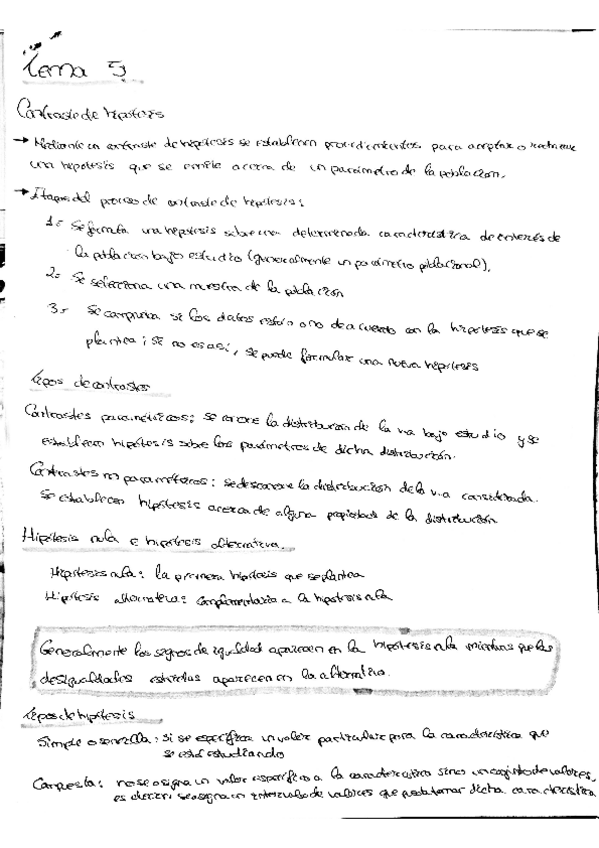 Tema 5
Contraste de hipótesis
→ Mediante un contraste de hipótesis se establecen procedimientos para aceptar o rechazar
una hipótesis que se emite acerca de un parámetro de la población.
→ Etapas del proceso de contraste de hipótesis:
1.- Se formula una hipótesis sobre una determinada característica de interés de
la población bajo estudio (generalmente un parámetro poblacional).
2.- Se selecciona una muestra de la población
3.- Se comprueba si los datos están o no de acuerdo con la hipótesis que se
plantea; si no es así, se puede formular una nueva hipótesis
Tipos de contrastes
Contrastes paramétricos: se conoce la distribución de la va bajo estudio y se
establecen hipótesis sobre los parámetros de dicha distribución.
Contrastes no paramétricos: se desconoce la distribución de la v.a considerada.
Se establecen hipótesis acerca de alguna propiedad de la distribución
Hipótesis nula e hipótesis alternativa.
Hipótesis nula: la primera hipótesis que se plantea
Hipótesis alternativa: complementaria a la hipótesis nula
Generalmente los signos de igualdad aparecen en la hipótesis nula mientras que las
desigualdades estrictas aparecen en la alternativa.
Tipos de hipótesis
Simple o sencilla: si se especifica un valor particular para la característica que
se está estudiando
Compuesta: no se asigna un valor específico a la característica sino un conjunto de valores,
es decir, se asigna un intervalo de valores que puede tomar dicha característica